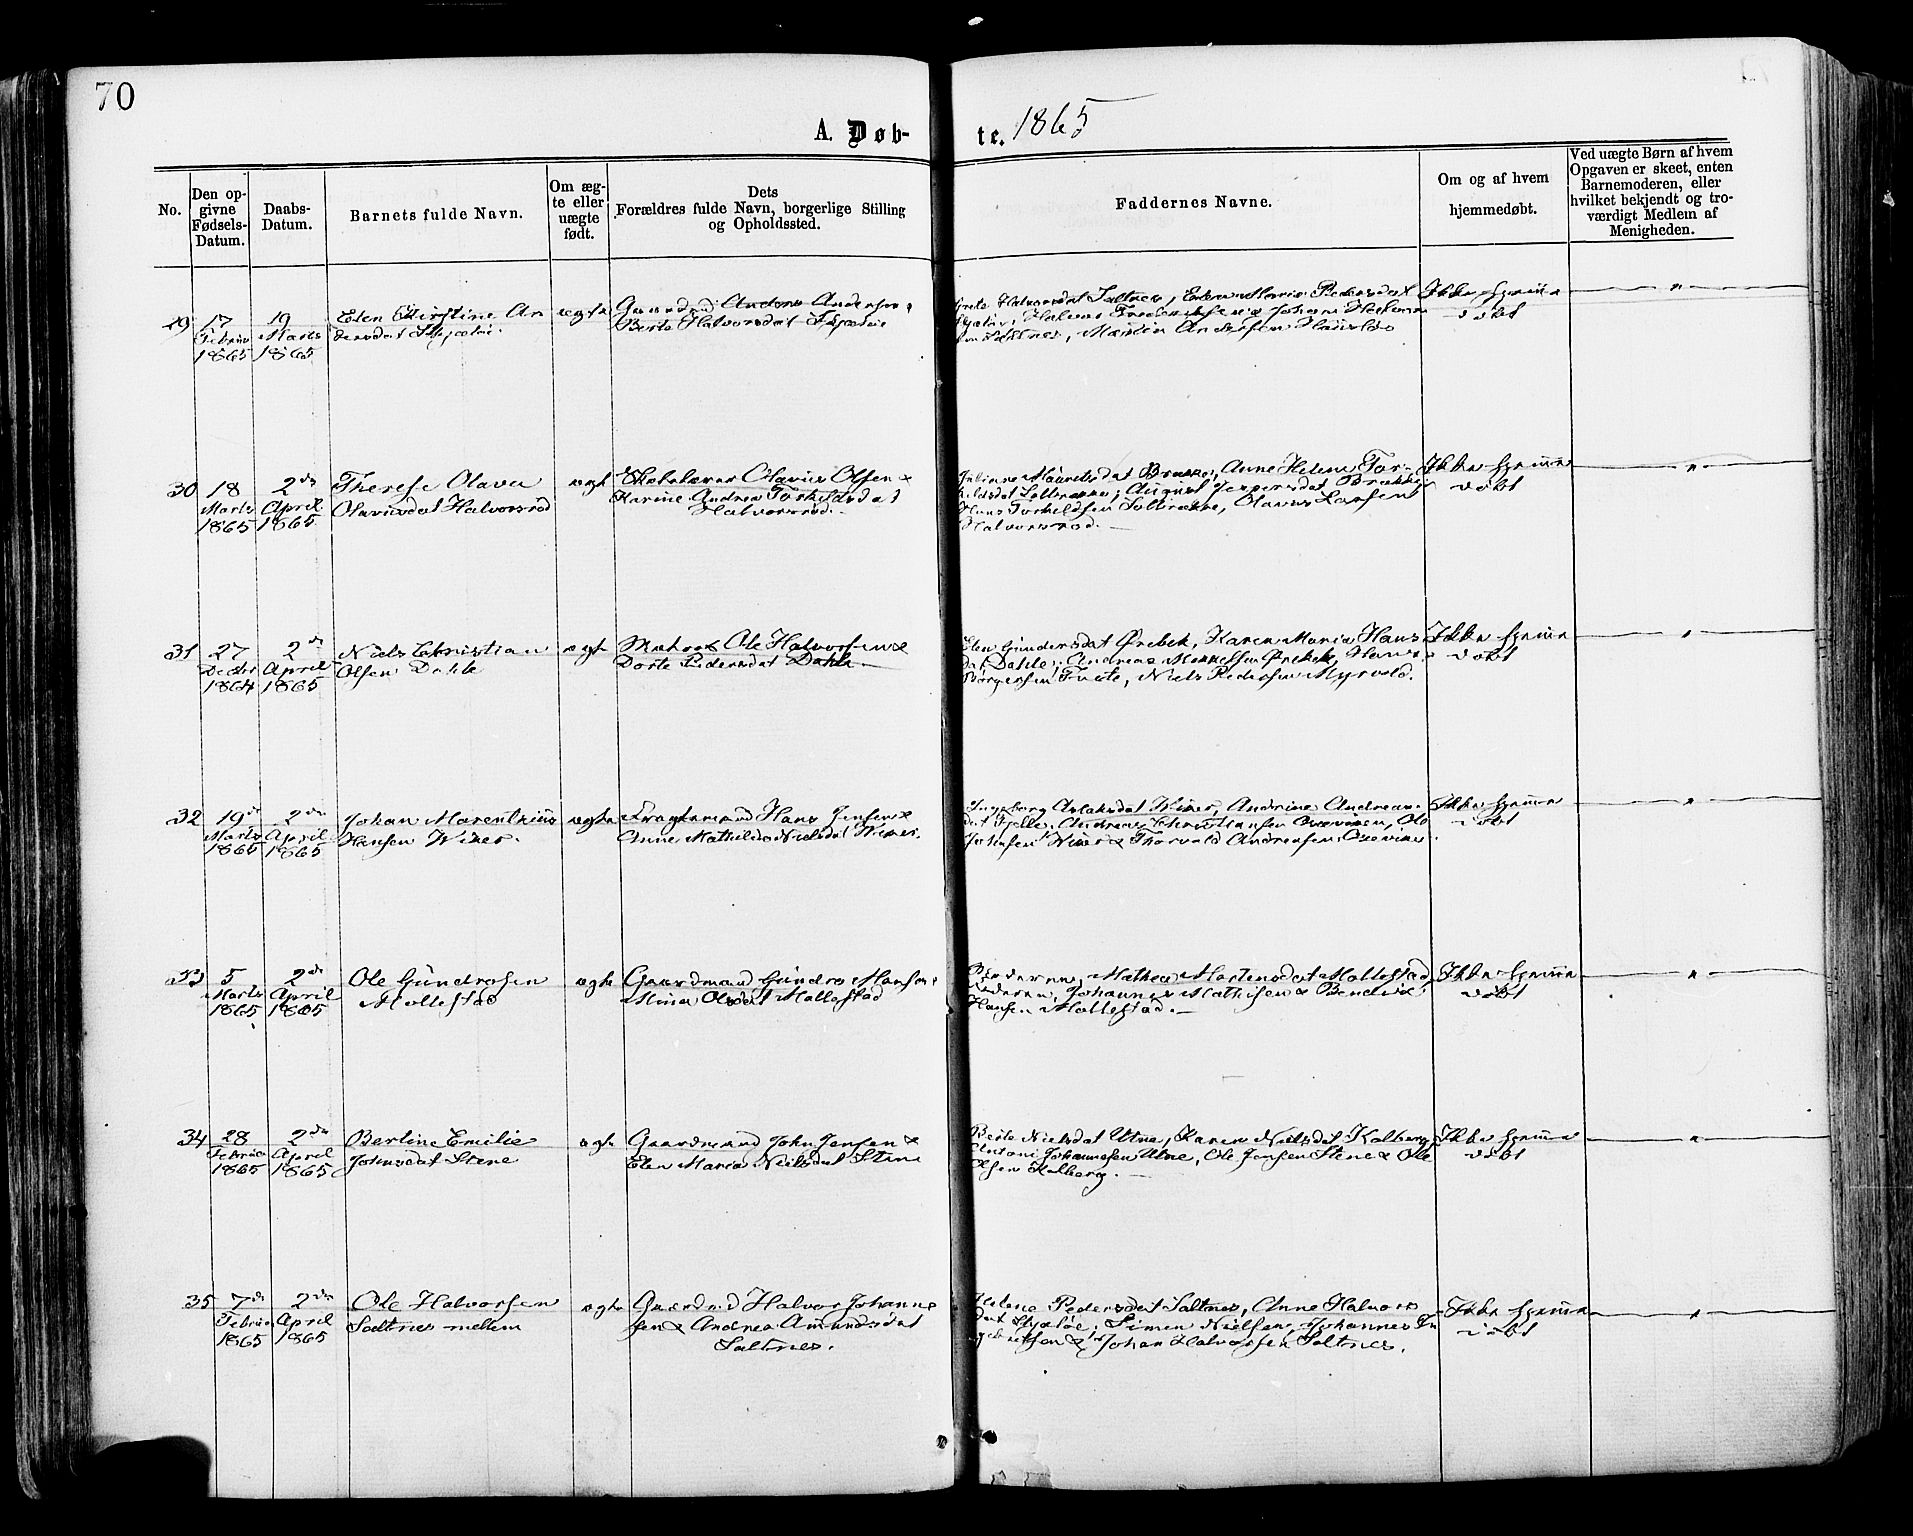 70
A. Døb-
te. 1865
No.
Den op-
givne
Fødsels-
Datum.
Daabs-
Datum.
Barnets fulde Navn.
Om æg-
te eller
uægte
født.
Dets
Forældres fulde Navn, borgerlige Stilling
og Opholdssted.
Faddernes Navne.
Om og af hvem
hjemmedøbt.
Ved uægte Børn af hvem
Opgaven er skeet, enten
Barnemoderen, eller
hvilket bekjendt og tro-
værdigt Medlem af
Menigheden.
29
17
Februar
1865
19
Marts
1865
Elen Kirstine An
dersdat
ægte
Anders Andersen
Berte Halvorsdat
Halvorsdat Saltnes, Elen Marie Pedersdat
Johan
Saltnes, Martin Andersen
Ikke hjemme
døbt
30
18
Marts
1865
2den
April
1865
Therese Olava
Olavusdat Halvorsrød
ægte
Olavus Olsen &
Karine Andrea Torkildsdat
Halvorsrød.
Brække, Anne Helene Tor-
kildsdat Solbrække, August Jespersdat Brække
Hans Torkildsen Solbrække, Olavus Larsen
Halvorsrød.
Ikke hjemme
døbt
31
27
Decbr
1864
2den
April
1865
Niels Christian
Olsen Dahle
ægte
Ole Halvorsen &
Dorte Pedersdat Dahle
Elen Gundersdat Ørebek, Karen Marie Hans
dat Dahle, Andreas Ørebek, Hans
Børgersen Tveite, Niels Pedersen Myrvold.
Ikke hjemme
døbt
32
19de
Marts
1865
2den
April
1865
Johan Marenthius
Hansen Wiker.
ægte
Fragtemand Hans Jensen &
Anne Mathilde Nielsdat Wiker.
Ingeborg Aslaksdat Wiker, Andrine Andreas-
dat Fjelle, Andreas Christiansen Oxeviken, Ole
Johnsen Wiker & Thorvald Andreasen Oxeviken.
Ikke hjemme
døbt
33
5
Marts
1865
2den
April
1865
Ole Gundrosen
Mollestad
ægte
Gaardmand Gundro Hansen &
Mina Olsdat Mollestad
Mathea Mortensdat Mollestad,
Faderen, Johannes Mathisen & Bendix
Hansen Mollestad.
Ikke hjemme
døbt
34
28
Februar
1865
2den
April
1865
Bertine Emilie
Johnsdat Stene
ægte
Gaardmand John Jensen &
Elen Maria Nielsdat Stene
Berte Nielsdat Utne, Karen Nielsdat Kolberg,
Antoni Johannesen Utne, Ole Jensen Stene & Ole
Olsen Kolberg.
Ikke hjemme
døbt
35
7de
Februar
1865
2den
April
1865
Ole Halvorsen
Saltnes mellem
ægte
Gaardmd Halvor Johanne
sen & Andrea Amundsdat
Saltnes.
Helene Pedersdat Saltnes, Anne Halvors
dat Skjeløe, Simen Nielsen, Johannes In
gebretsen & Johan Halvorsen Saltnes.
Ikke hjemme
døbt